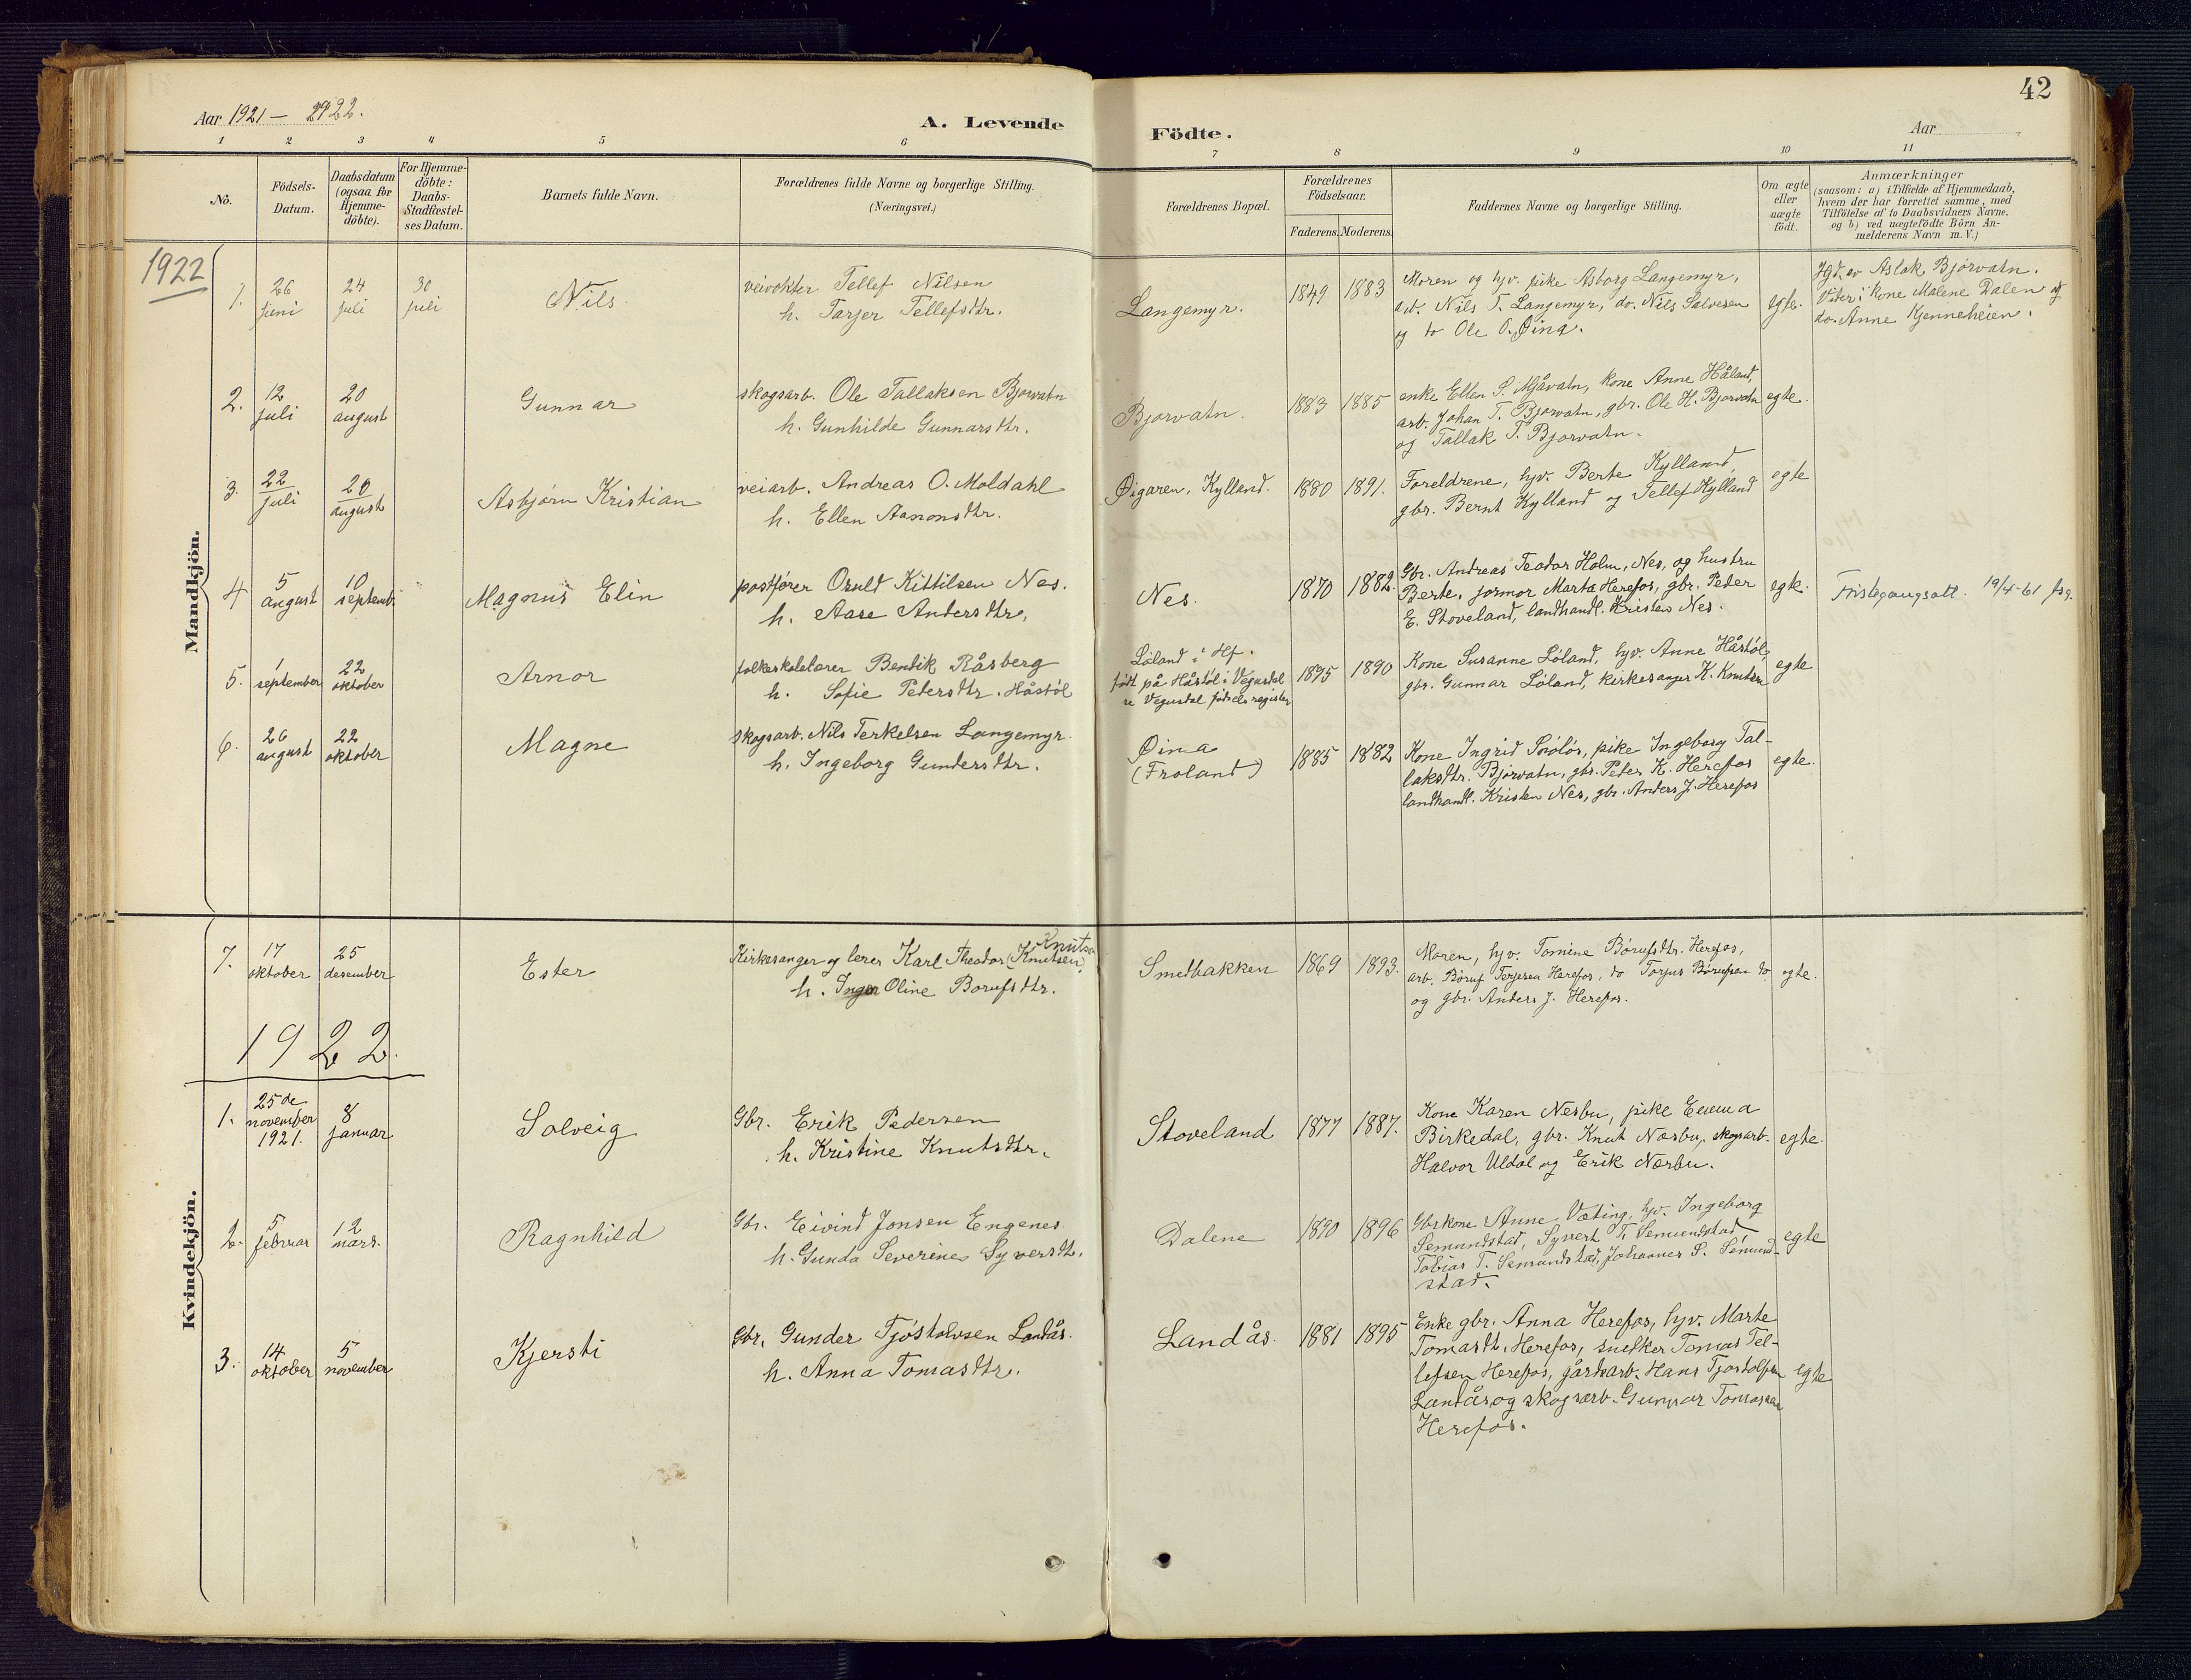 Aar 1921 – 1922.
A. Levende
Födte.
42
Aar
1 2 3 4 5 6 7 8 9 10 11
No.
Födsels-
Datum.
Daabsdatum
(ogsaa for
Hjemme-
döbte).
For Hjemme-
döbte:
Daabs-
Stadfæstel-
ses Datum.
Barnets fulde Navn.
Forældrenes fulde Navne og borgerlige Stilling.
(Næringsvei.)
Forældrenes Bopæl.
Forældrenes
Födselsaar.
Faderens.
Moderens.
Faddernes Navne og borgerlige Stilling.
Om ægte
eller
uægte
födt.
Anmærkninger
(saasom: a) i Tilfælde af Hjemmedaab,
hvem der har forrettet samme, med
Tilföielse af to Daabsvidners Navne.
og b) ved uægtefödte Börn An-
melderens Navn m. V.)
Mandkjön.
1922
1.
26
juni
24
juli
30
juli
Nils.
veivokter Tellef Nilsen
h. Tarjer Tellefsdtr.
Langemyr.
1849
1883
Moren og hjv. pike Asborg Langemyr,
arb. Nils T. Langemyr, do. Nils Salvesen
og do Ole O. Øina.
egte.
Jgd. av Aslak Bjorvatn.
Viter: kone Malene Dalen og
do. Anne Kjenneheien.
2.
12
juli
20
august
Gunnar
skogsarb. Ole Tallaksen Bjorvatn
h. Gunhilde Gunnarsdtr.
Bjorvatn.
1883
1885
enke Ellen S. Mjåvatn, kone Anne Håland,
arb. Johan T. Bjorvatn, gbr. Ole H. Bjorvatn
og Tallak T. Bjorvatn.
egte.
3.
22
juli
20
august
Asbjørn Kristian
veiarb. Andreas O. Moldahl
h. Ellen Aanonsdtr.
Øigaren, Kylland.
1880
1891.
Foreldrene, hjv. Berte Kylland,
gbr. Bernt Kylland og Tellef Kylland
egte
4
5
august
10
septemb.
Magnus Elin
postfører Osuld Kittilsen Nes.
h. Aase Andersdtr,
Nes.
1870
1882.
Gbr. Andreas Teodor Holm, Nes, og hustru
Berte, jormor Marta Herefos, gbr. Peder
E. Stoveland, landhandl. Kristen Nes.
egte.
19/4-61
5.
1
september
22
oktober
Arnor
folkeskolelærer Bendik Råsberg
h. Sofie Pedersdtr. Håstøl
Løland i Hf.
født på Håstøl i Vegusdal
se Vegusdal fødselsregister
1895
1890
Kone Susanne Løland, hjv. Anne Håstøl,
gbr. Gunnar Løland, kirkesanger K. Knutsen
egte
6.
26
august
22
oktober
Magne
skogsarb. Nils Terkelsen Langemyr.
h. Ingeborg Gundersdtr.
Øina
(Froland)
1885
1882
Kone Ingrid pike Ingeborg Tal-
laksdtr. Bjorvatn, gbr. Peder K. Herefos
landhandl. Kristen Nes, gbr. Anders J. Herefos
egte.
7.
17
oktober
25
desember
Ester
Knutson
Kirkesanger og lerer Karl Theodor (Knutsen)
h. Inger Oline Borufsdtr.
Smedbakken
1869
1893.
Moren, hjv. Tomine Börufsdtr. Herefos,
arb. Böruf Terjesen Herefos, do Torjus Börufsen do
og gbr. Anders J. Herefos.
egte.
1922.
Kvindekjön.
1.
25de
november
1921.
8
januar
Solveig
Gbr. Erik Pedersen
h. Kristine Knutsdtr.
Stoveland
1877
1887.
Kone Karen Nesbu, pike Emma
Birkedal, gbr. Knut Næsbu, skogsarb.
Halvor Uldal og Erik Næsbu.
egte.
2.
5
februar
12
mars.
Ragnhild
Gbr. Eivind Jonsen Engenes
h. Gunda Severine Syversdtr.
Dalene
1890
1896
Gbrkone Anne Væting, hjv. Ingeborg
Semundstad, Syvert T. Semundstad
Tobias T. Semundstad, Johannes S. Semund-
stad.
egte
3.
14
oktober
5
november
Kjersti
Gbr. Gunder Tjöstolvsen Landås.
h. Anna Tomasdtr.
Landås.
1881
1895
Enke gbr. Anna Herefos, hjv. Marte
Tomasdt. Herefos, snekker Tomas Tel-
lefsen Herefos, gårdsarb. Hans Tjostolfsen
Landås og skogsarb. Gunnar Tomassen
Herefos.
egte